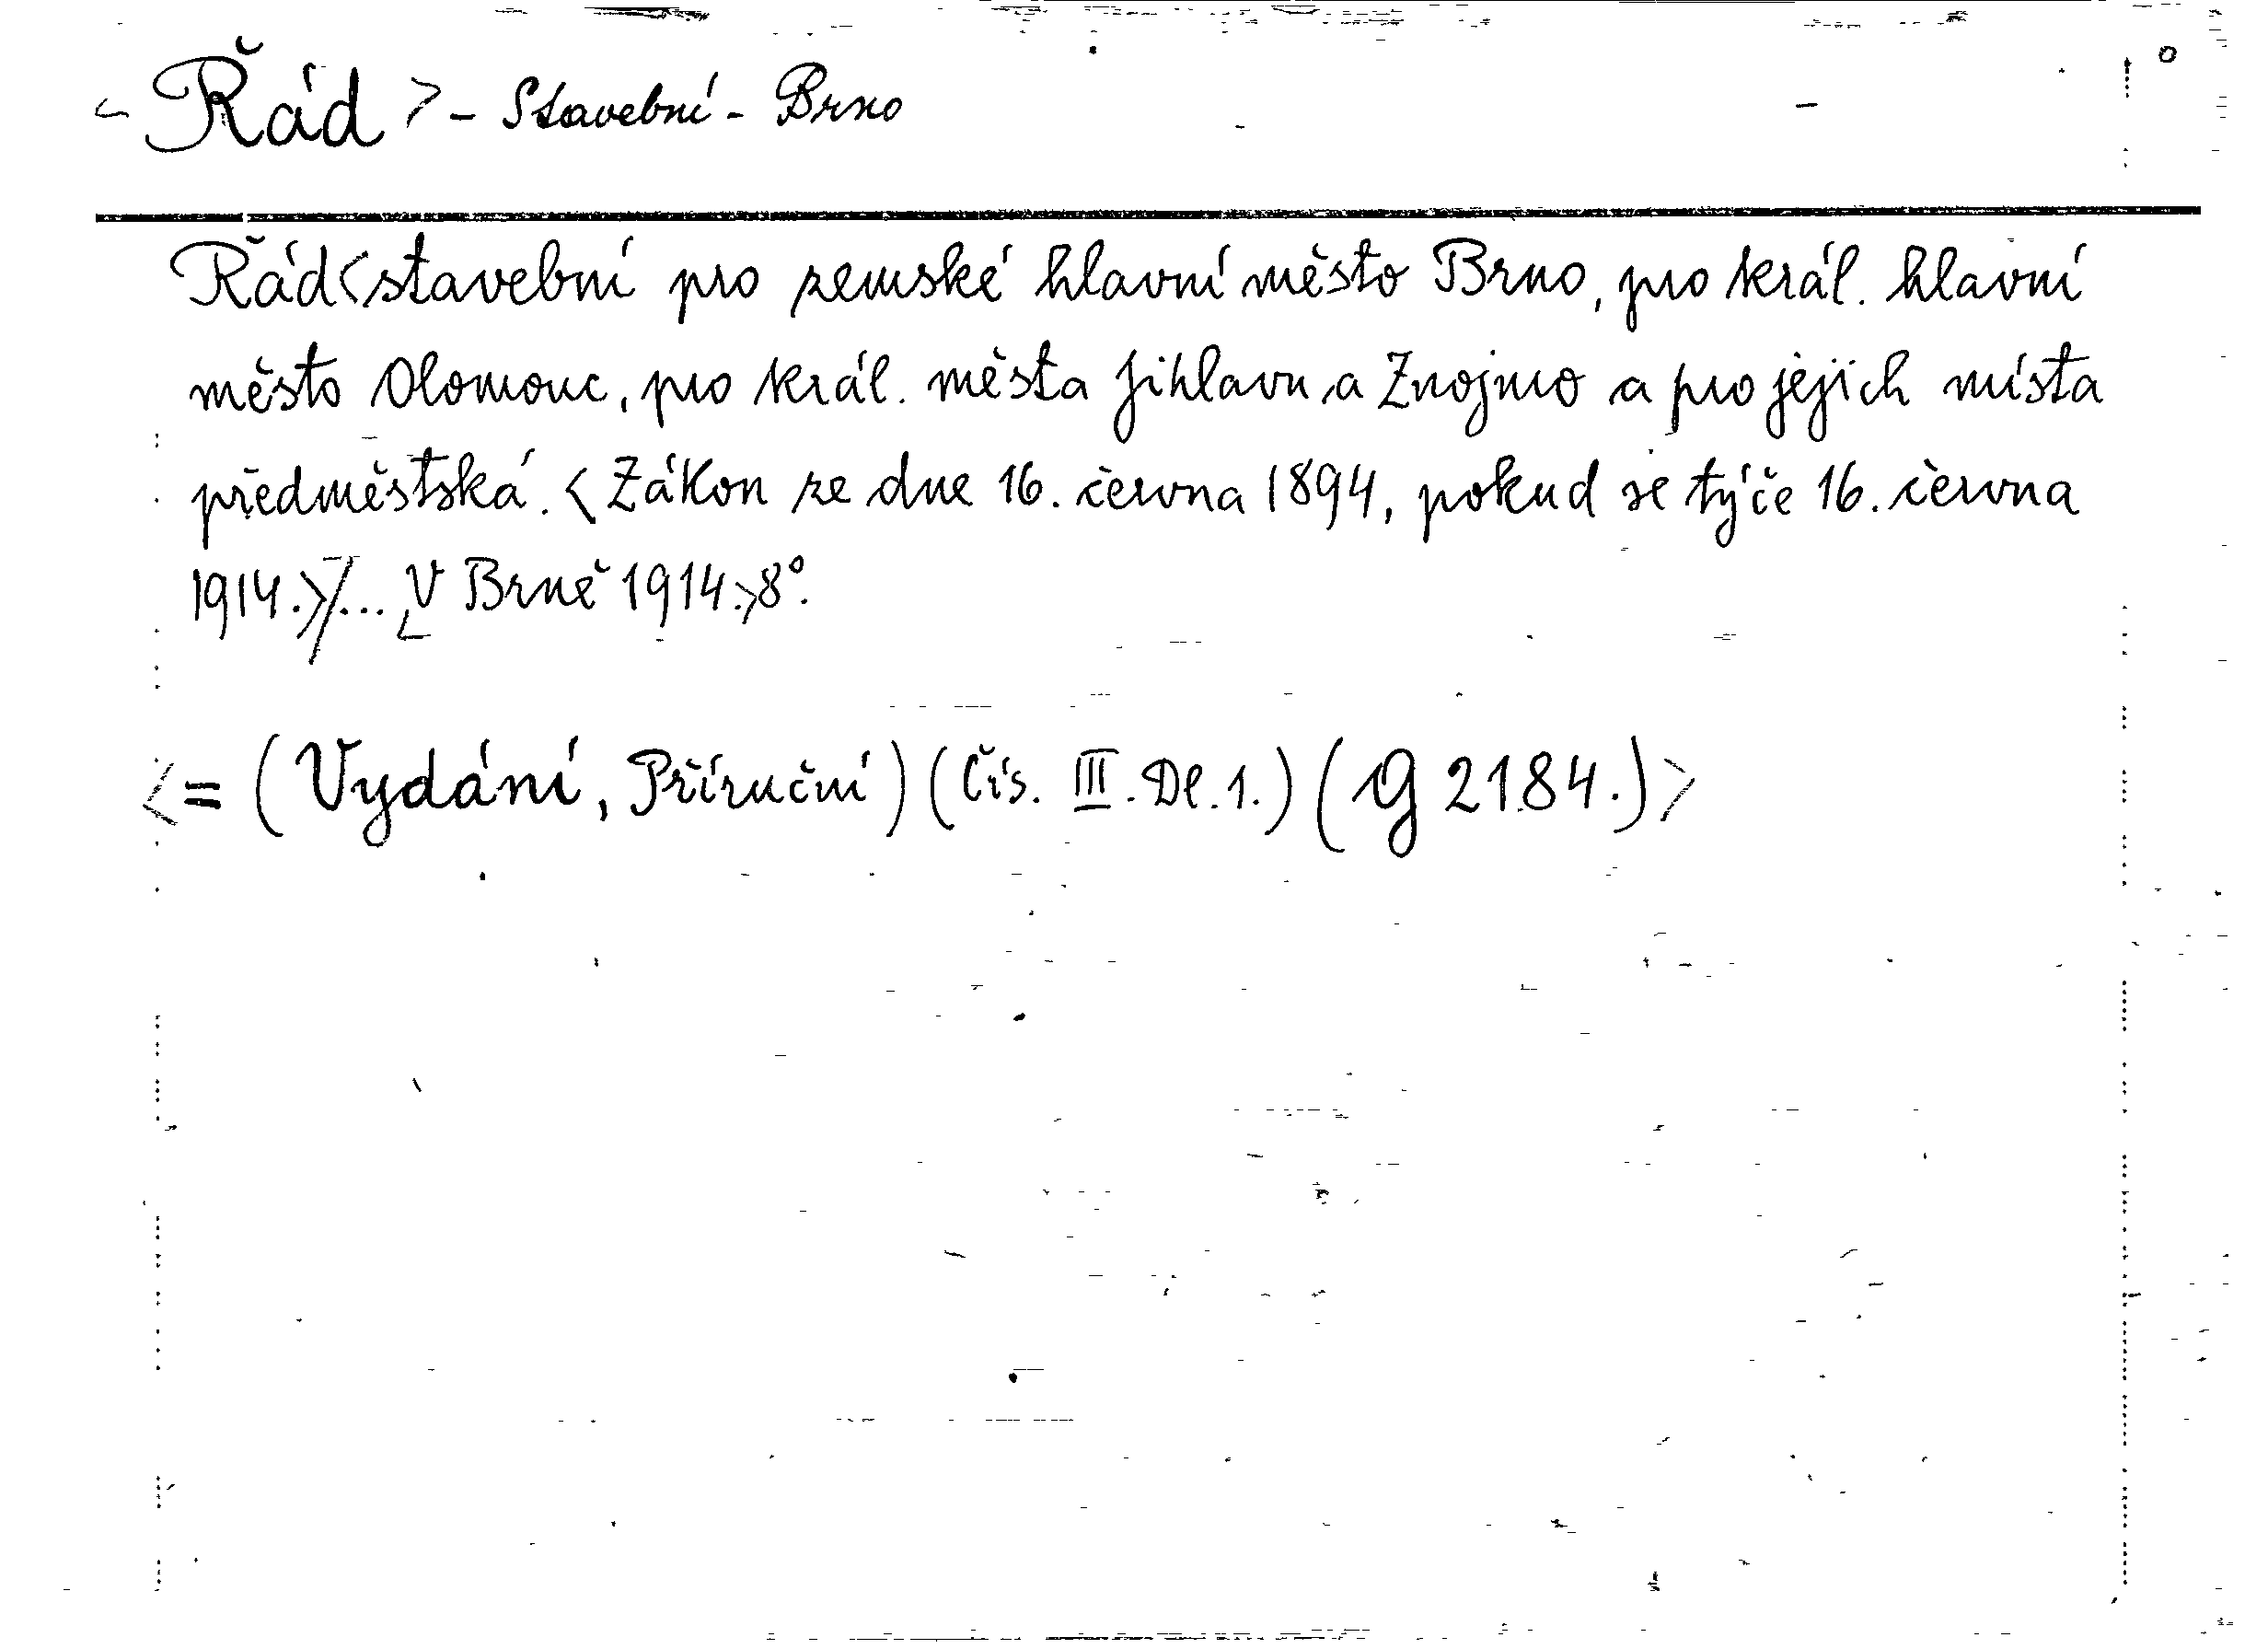 < Řád > - Stavební - Brno
Řád < stavební pro zemské hlavní město Brno, pro král. hlavní
město Olomouc, pro král. města Jihlavu a Znojmo a pro jejich místa
předměstská. < Zákon ze dne 16. června 1894, pokud se týče 16. června
1914. > / ... < V Brně 1914. > 8°.
< = (Vydání, Příruční) (Čís. III. Dl. 1.) (G 2184.) >